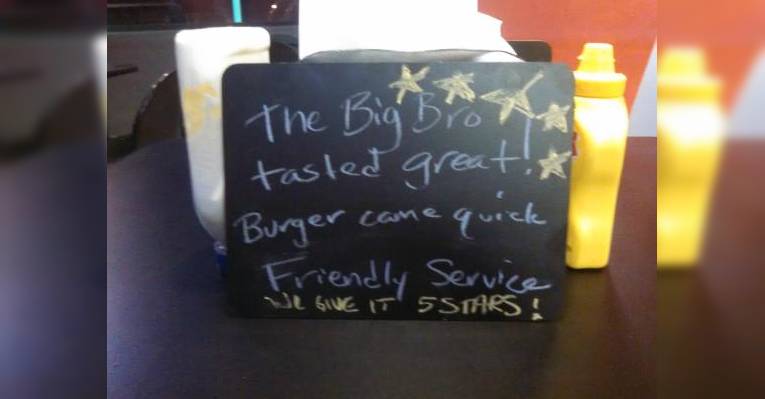 The Big Bro
tasted great!
Burger came quick
Friendly Service
WE GIVE IT 5 STARS!